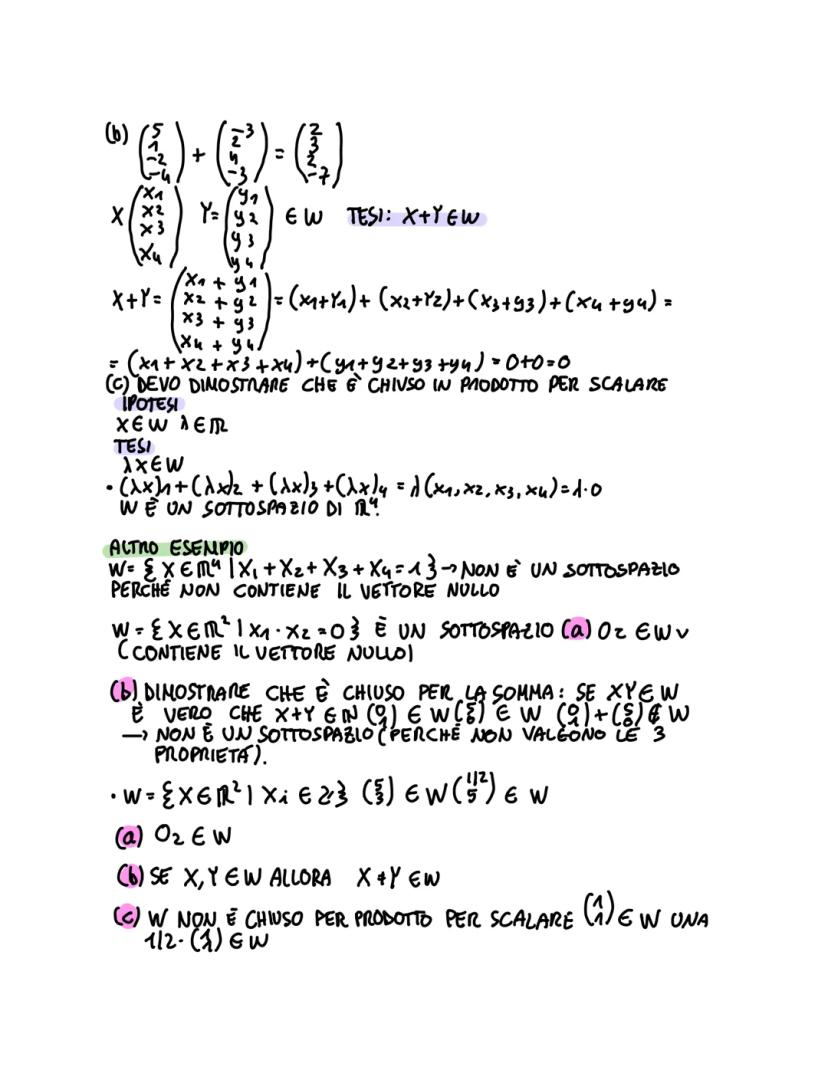 (b) (5 1 -2 -4) + (-3 2 4 -3) = (2 3 2 -7)
X (x1 x2 x3 x4) Y= (y1 y2 y3 y4) ∈ W TESI: X+Y ∈ W
X+Y= (x1 + y1 x2 + y2 x3 + y3 x4 + y4) = (x1+Y1)+ (x2+Y2)+(x3+y3)+(x4+y4) =
= (x1+x2+x3+x4)+(y1+y2+y3+y4) = 0+0=0
(c) DEVO DIMOSTRARE CHE È CHIUSO IN PRODOTTO PER SCALARE
IPOTESI
X∈W λ∈ℝ
TESI
λX∈W
• (λx)1+(λx)2 + (λx)3+(λx)4 = λ(x1,x2,x3,x4)=λ·0
W È UN SOTTOSPAZIO DI ℝ⁴.
ALTRO ESEMPIO
W= { X∈ℝ⁴ | X1+X2+X3+X4=1} → NON È UN SOTTOSPAZIO
PERCHÉ NON CONTIENE IL VETTORE NULLO
W={X∈ℝ² | X1·X2=0} È UN SOTTOSPAZIO (a) O2 ∈W ✓
(CONTIENE IL VETTORE NULLO)
(b) DIMOSTRARE CHE È CHIUSO PER LA SOMMA: SE XY∈W
È VERO CHE X+Y ∈ N (0 1) ∈ W (5 0) ∈ W (0 1)+(5 0) ∉ W
→ NON È UN SOTTOSPAZIO (PERCHÉ NON VALGONO LE 3
PROPRIETÀ).
• W={X∈ℝ² | Xi ∈ ℤ} (5 3) ∈ W (1/2 5) ∈ W
(a) O2 ∈ W
(b) SE X,Y ∈W ALLORA X+Y ∈W
(c) W NON È CHIUSO PER PRODOTTO PER SCALARE (1 1) ∈ W UNA
1/2·(1 1) ∈ W